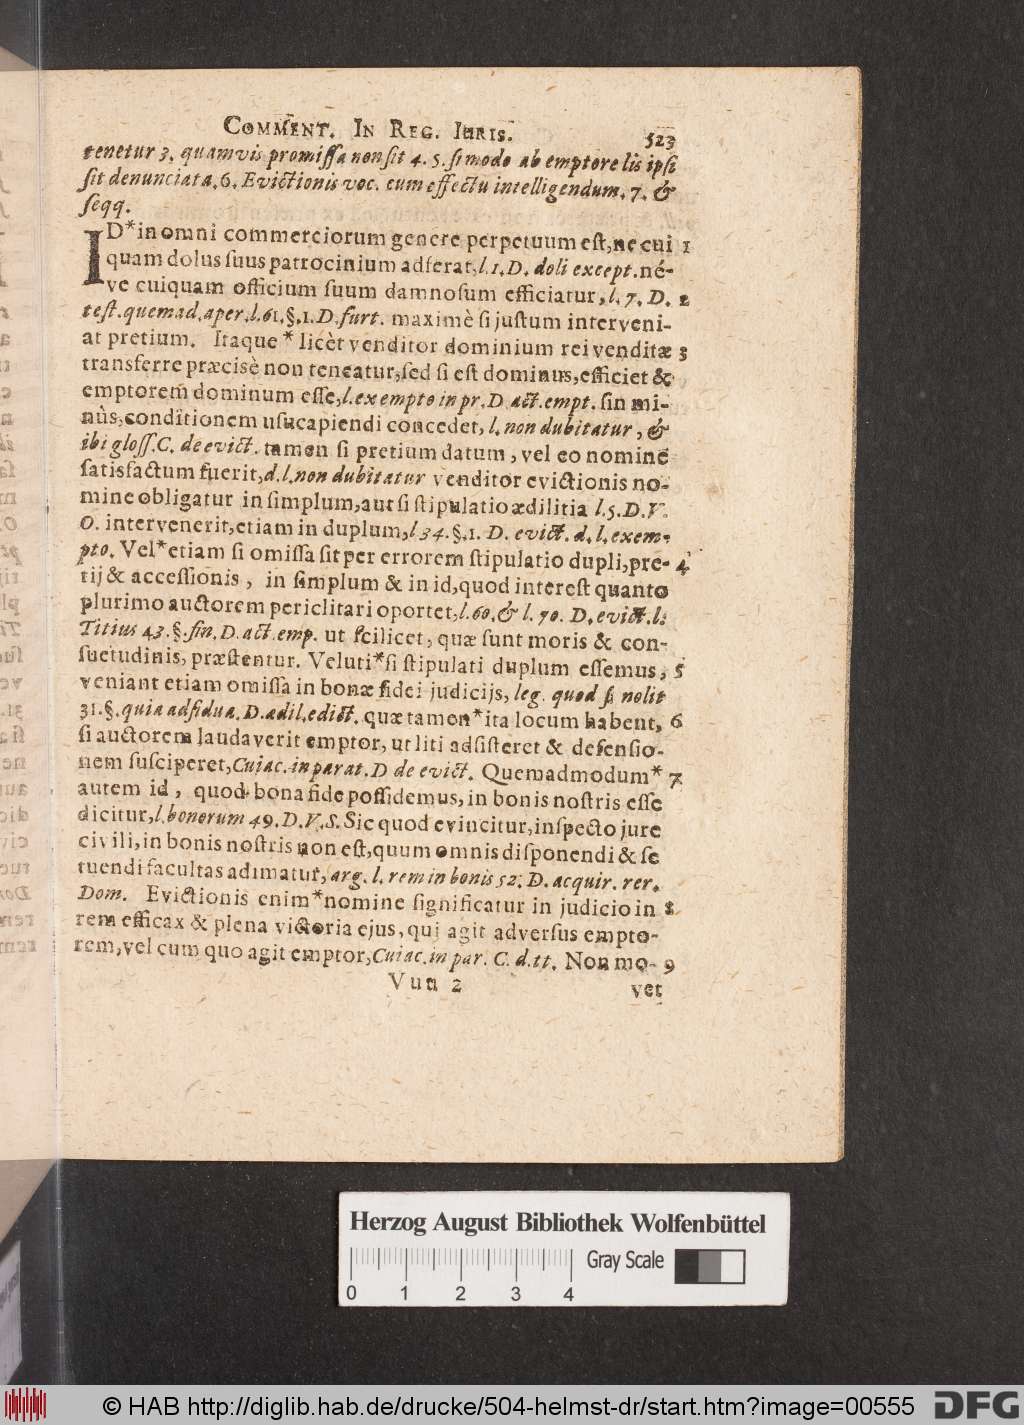 COMMENT. IN REG. IURIS. 523
tenetur 3. quamvis promiſſa non ſit 4. 5. ſi modo ab emptore lis ipſi
ſit denunciata. 6. Evictionis voc. cum effectu intelligendum. 7. &
ſeqq.
ID*in omni commerciorum genere perpetuum eſt, ne cui 1
quam dolus ſuus patrocinium adferat, l. 1. D. doli except. né-
ve cuiquam officium ſuum damnoſum efficiatur, l. 7. D. 2
teſt. quemad. aper. l. 61. §. 1. D. furt. maximè ſi juſtum interveni-
at pretium. Itaque * licèt venditor dominium rei venditæ 3
transferre præcisè non teneatur, ſed ſi eſt dominus, efficiet &
emptorem dominum eſſe, l. ex empto in pr. D. act. empt. ſin mi-
nùs, conditionem uſucapiendi concedet, l. non dubitatur, &
ibi gloſſ. C. de evict. tamen ſi pretium datum, vel eo nomine
ſatisfactum fuerit, d. l. non dubitatur venditor evictionis no-
mine obligatur in ſimplum, aut ſi ſtipulatio ædilitia l. 5. D. V.
O. intervenerit, etiam in duplum, l 34. §. 1. D. evict. d. l. exem-
pto. Vel*etiam ſi omiſſa ſit per errorem ſtipulatio dupli, pre- 4
tij & acceſſionis, in ſimplum & in id, quod intereſt quanto
plurimo auctorem periclitari oportet, l. 60. & l. 70. D. evict. l.
Titius 43. §. fin. D. act. emp. ut ſcilicet, quæ ſunt moris & con-
ſuetudinis, præſtentur. Veluti*ſi ſtipulati duplum eſſemus, 5
veniant etiam omiſſa in bonæ fidei judicijs, leg. quod ſi nolit
31. §. quia adſidua. D. adil. edict. quæ tamen*ita locum habent, 6
ſi auctorem laudaverit emptor, ut liti adſiſteret & defenſio-
nem ſuſciperet, Cujac. in parat. D de evict. Quemadmodum* 7
autem id, quod bona fide poſſidemus, in bonis noſtris eſſe
dicitur, l. bonorum 49. D. V. S. Sic quod evincitur, inſpecto jure
civili, in bonis noſtris non eſt, quum omnis diſponendi & ſe
tuendi facultas adimatur, arg. l. rem in bonis 52. D. acquir. rer.
Dom. Evictionis enim*nomine ſignificatur in judicio in 8
rem efficax & plena victoria ejus, qui agit adverſus empto-
rem, vel cum quo agit emptor, Cuiac. in par. C. d. tt. Non mo- 9
Vuu 2 vet
Herzog August Bibliothek Wolfenbüttel
Gray Scale
0 1 2 3 4
© HAB http://diglib.hab.de/drucke/504-helmst-dr/start.htm?image=00555
DFG